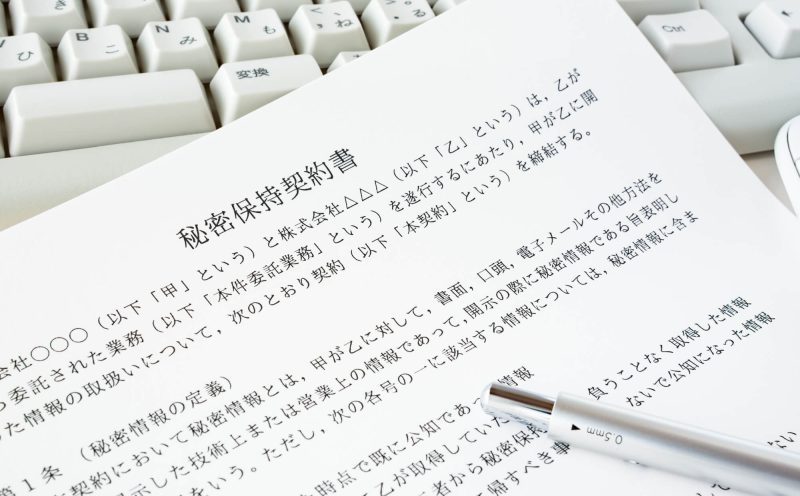 B
N
M
Ctrl
ひ
こ
み
も
ね
る
変換
秘密保持契約書
会社○○○(以下「甲」という)と株式会社△△△(以下「乙」という)は,乙が
委託された業務(以下「本件委託業務」という)を遂行するにあたり,甲が乙に開
た情報の取扱いについて,次のとおり契約(以下「本契約」という)を締結する。
第1条 (秘密情報の定義)
本契約において秘密情報とは,甲が乙に対して,書面,口頭,電子メールその他方法を
示した技術上または営業上の情報であって,開示の際に秘密情報である旨表明し
いう。ただし,次の各号の一に該当する情報については,秘密情報に含ま
時点で既に公知であ 情報
乙が取得していた 負うことなく取得した情報
者から秘密保持 ないで公知になった情報
帰すべき事
0.5mm